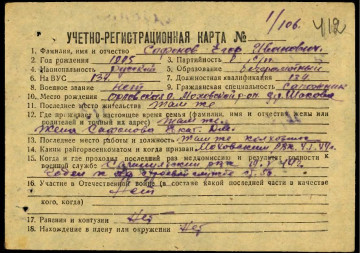 1/106.
412
УЧЕТНО-РЕГИСТРАЦИОННАЯ КАРТА №
1. Фамилия, имя и отчество Сафонов Егор Иванович.
2. Год рождения 1905 3. Партийность б/п
4. Национальность Русский 5. Образование
6. На ВУС 134 7. Должностная квалификация 124
8. Военное звание 9. Гражданская специальность сапожник
10. Место рождения Орловская о. Моховской р-он
11. Последнее место жительства там же
12. Где проживает в настоящее время семья (фамилия, имя и отчество жены или
родителей и точный их адрес) там же
Жена Сафонова
13. Последнее место работы и должность там же колхозник
14. Каким райгорвоенкоматом и когда призван Моховским РВК
15. Когда и где проходил последний раз медкомиссию и результат годности к
военной службе
годен к строевой службе
16. Участие в Отечественной войне (в составе какой последней части в качестве
кого, когда) Нет
17. Ранения и контузии Нет
18. Нахождение в плену или окружении Нет